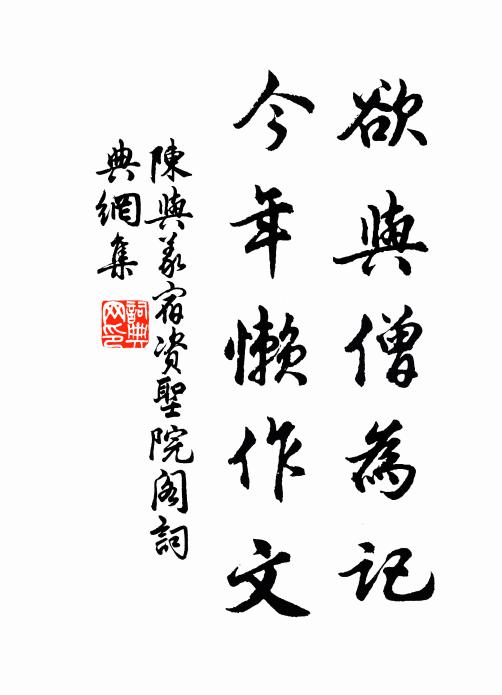 欲與僧為記
今年懶作文
陳與義宿资聖院阁詞
典網集
詞典
网印